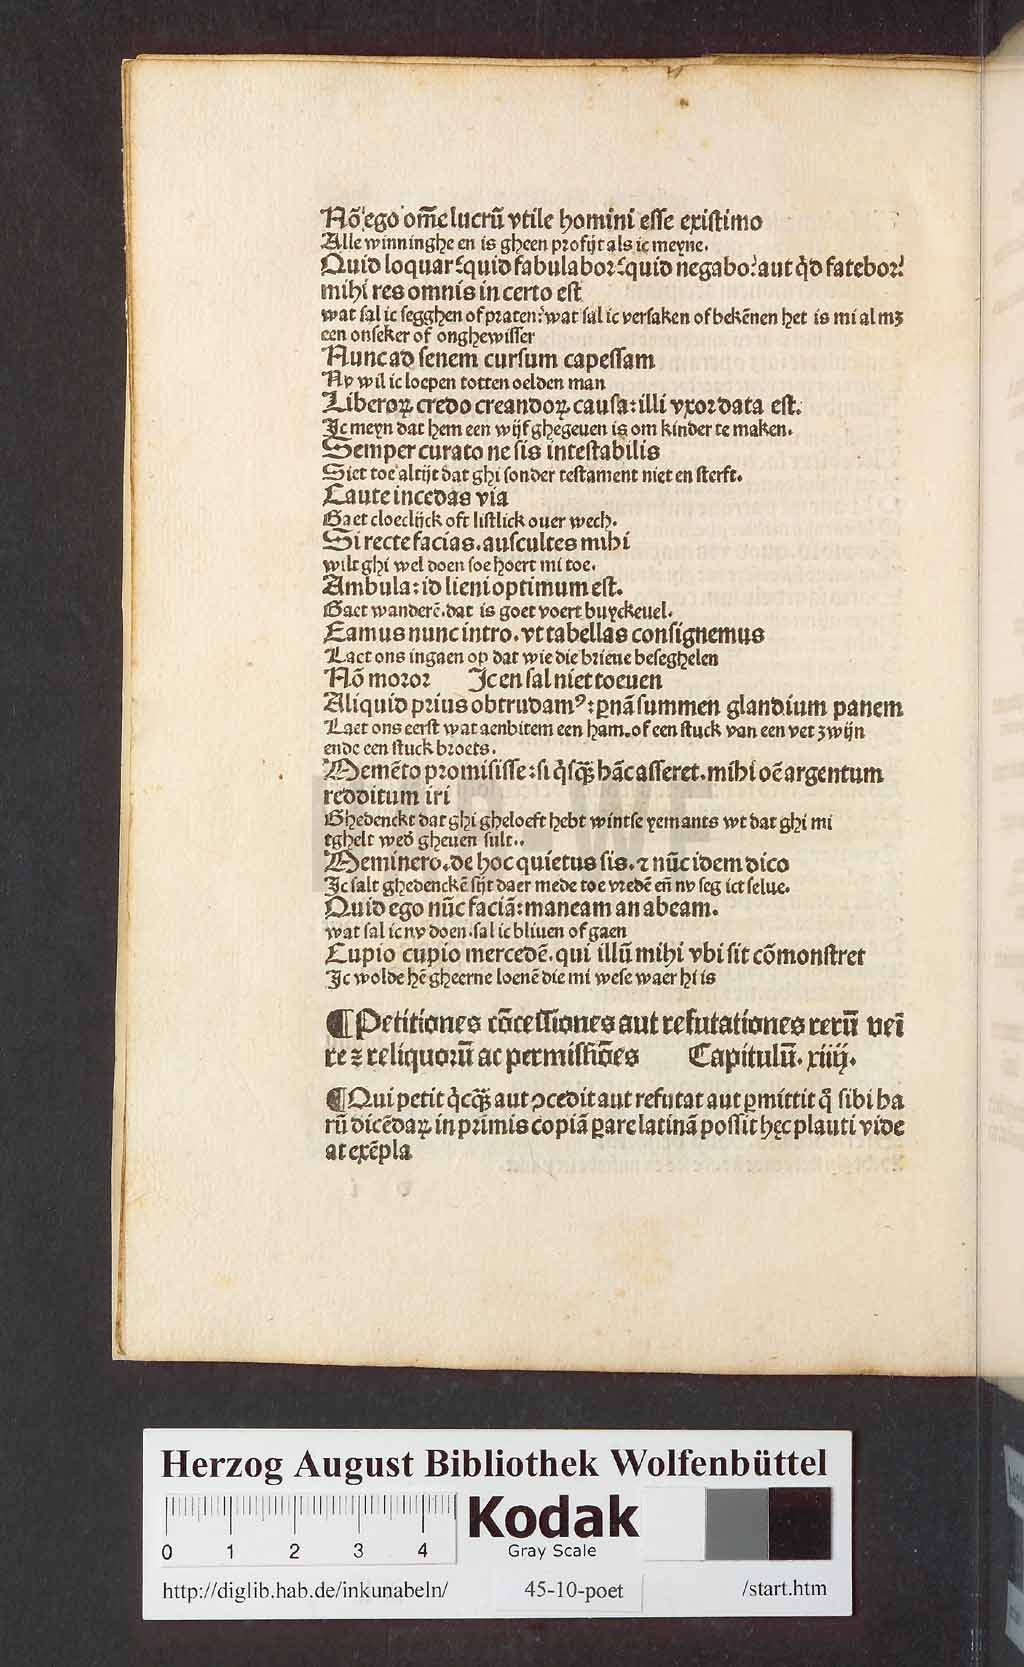 Nõ ego om̃e lucrũ vtile homini esse existimo
Alle winninghe en is gheen profijt als ic meyne.
Quid loquar? quid fabulabor? quid negabo? aut q̇d fatebor?
mihi res omnis incerto est
wat sal ic segghen of praten? wat sal ic versaken of bekẽnen het is mi al mʒ
een onseker of onghewisser
Nunc ad senem cursum capessam
Nv wil ic loepen totten oelden man
Liberoꝝ credo creandoꝝ causa: illi vxor data est.
Ic meyn dat hem een wijf ghegeuen is om kinder te maken.
Semper curato ne sis intestabilis
Siet toe altijt dat ghi sonder testament niet en sterft.
Caute incedas via
Gaet cloeclijck oft listlick ouer wech.
Si recte facias. auscultes mihi
wilt ghi wel doen soe hoert mi toe.
Ambula: id lieni optimum est.
Gaet wanderẽ. dat is goet voert buyckeuel.
Eamus nunc intro. vt tabellas consignemus
Laet ons ingaen op dat wie die brieue beseghelen
Nõ moror Ic en sal niet toeuen
Aliquid prius obtrudamꝰ: ꝑnã summen glandium panem
Laet ons eerst wat aenbitem een ham. of een stuck van een vet zwijn
ende een stuck broets.
Memẽto promisisse: si q̇sq̃ʒ hãc asseret. mihi oẽ argentum
redditum iri
Ghedenckt dat ghi gheloeft hebt wintse yemants wt dat ghi mi
tghelt wed̄ gheuen sult..
Meminero. de hoc quietus sis. ⁊ nũc idem dico
Ic salt ghedenckẽ sijt daer mede toe vredẽ en̄ nv seg ict selue.
Quid ego nũc faciã: maneam an abeam.
wat sal ic nv doen. sal ic bliuen of gaen
Cupio cupio mercedẽ. qui illũ mihi vbi sit cõmonstret
Ic wolde hẽ gheerne loenẽ die mi wese waer hi is
¶ Petitiones cõcessiones aut refutationes rerũ veñ
re ⁊ reliquorũ ac permissiões Capitulũ. xiiij.
¶ Qui petit q̇cq̃ʒ aut ꝯcedit aut refutat aut ꝑmittit q̇ sibi ha
rũ dicẽdaꝝ in primis copiã ꝑare latinã possit hęc plauti vide
at exẽpla
HAB-WF
Herzog August Bibliothek Wolfenbüttel
0 1 2 3 4
Kodak
Gray Scale
http://diglib.hab.de/inkunabeln/ 45-10-poet /start.htm